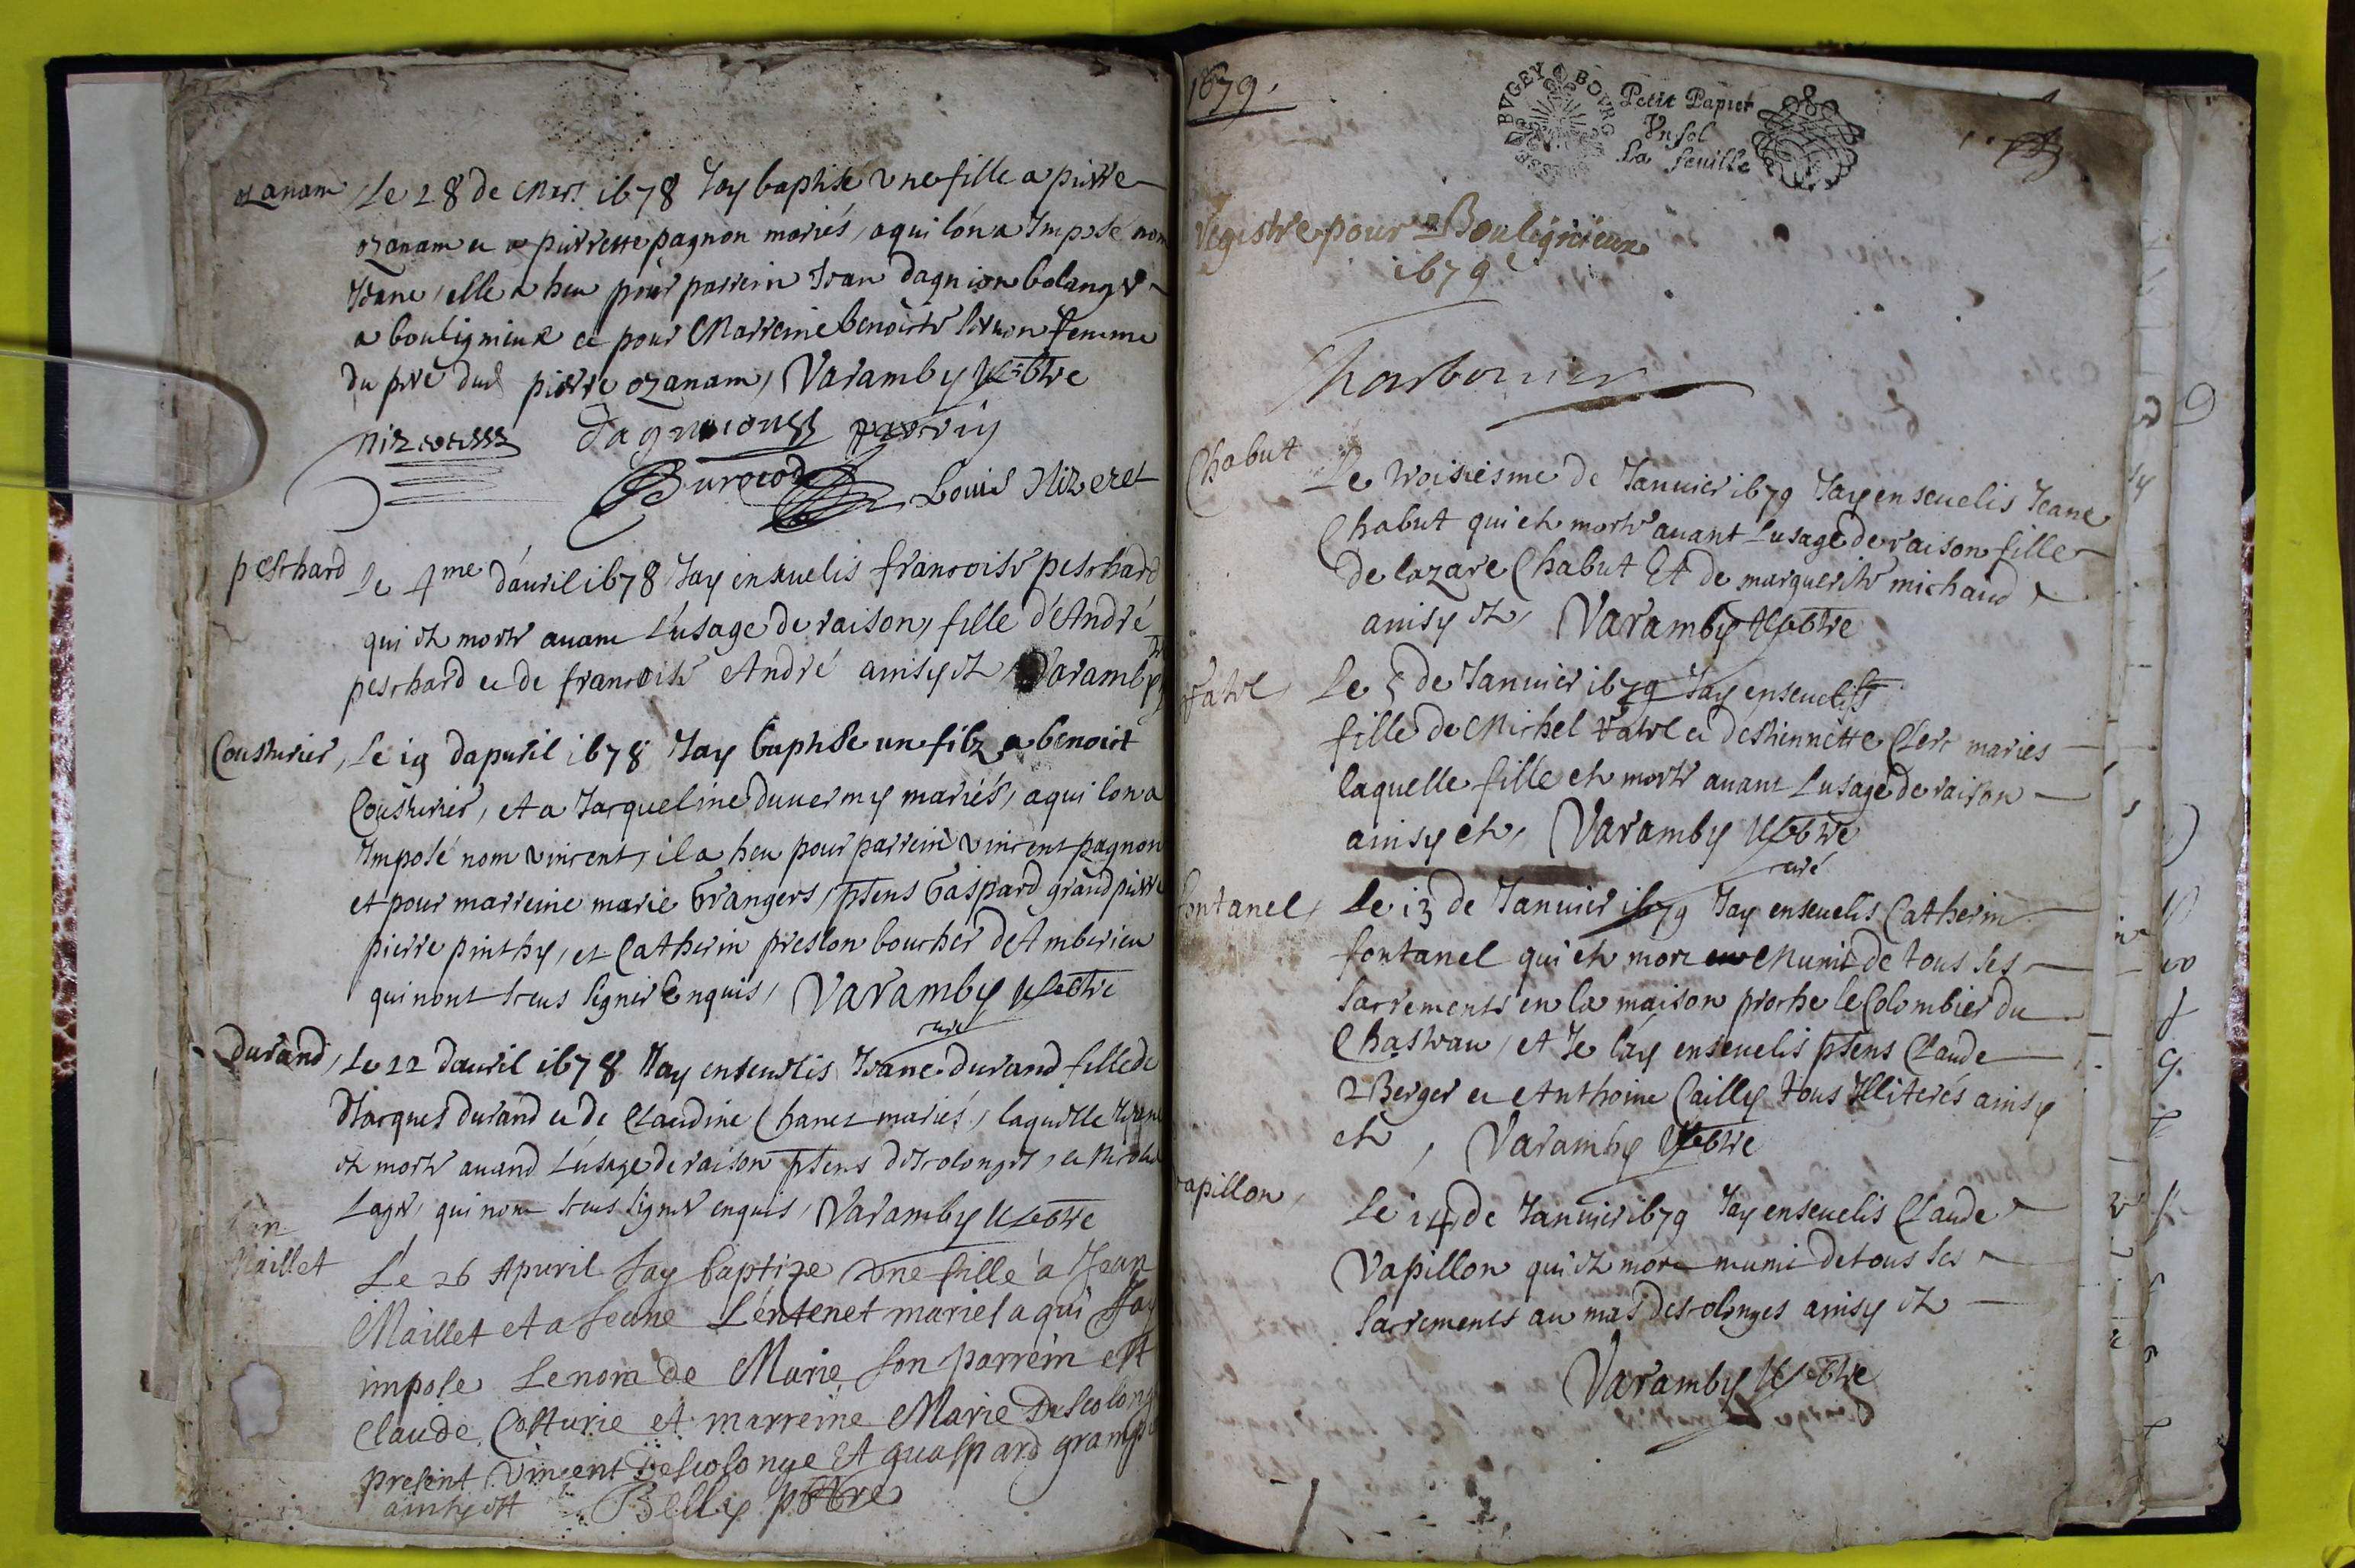 ozanam Le 28 de Mars 1678 Jay baptisé une fille a pierre
ozanam et a pierrette pagnon mariés, a qui lón a Imposé nom
Jeane, elle a heu pour parrein Jean dagnion bolanger
a boulignieux et pour Marreine benoiste femme
du pere dud pierre ozanam, Varamby pbtre
Dagnions parrin
Burocod Louis Nizeret
peschard Le 4me dáuril 1678 Jay enseuelis francoise peschard
qui est morte auant lúsage de raison, fille dAndré
peschard et de francoise André ainsy est, Varamby
Cousturier, Le 19 dapuril 1678 Jay baptisé un filz a benoict
Cousturier, et a Jacqueline duuernny mariés, a qui lon a
Imposé nom vincent, il a heu pour parrein vincent pagnon
et pour marreine marie Grangers, ptens Gaspard grandpierre
pierre pinthy, et Catherin preslon boucher dAmberieu
qui nont sceus signer Enquis, Varamby pbtre
curé
Durand, Le 22 dauril 1678 Jay enseuelis Jeane durand fille de
Jacques durand et de Claudine Chanet mariés, laquelle Jeane
est morte auand lúsage de raison ptens descolonges, et Nicolas
Lager, qui nont sceus signer enquis, Varamby pbtre
Maillet Le 26 Apuril Jay baptize une fille a Jean
Maillet et a Jeane Léntenet mariés a qui Jay
impose Le nom de Marie son parrein est
Claude Costurie et marreine Marie Descolong
present vincent Descolonge et guaspard grampi
ainsy est Belly pbtre
1679.
BVGEY BOVRG
Petit Papier
Vn sol
La feuille
Registre pour Boulignieux
1679
Charbonnier
Chabut Le troisiesme de Januier 1679 Jay enseuelis Jeane
Chabut qui est morte auant Lusage de raison fille
de lazare Chabut Et de marguerite michaud
ainsy est, Varamby pbtre
Le 5 de Januier 1679 Jay enseuelis
fille de Michel et destiennette Clerc mariés
laquelle fille est morte auant Lusage de raison
ainsy est, Varamby pbtre
curé
fontanel, Le 13 de Januier 1679 Jay enseuelis Catherin
fontanel qui est mort Muni de tous ses
sacrements en la maison proche le Colombier du
Chasteau, et Je láy enseuelis ptens Claude
Berger et Anthoine Cailly tous Illiterés ainsy
est, Varamby pbtre
vapillon, Le 14 de Januier 1679 Jay enseuelis Claude
Vapillon qui est mort muni de tous ses
sacrements au mas descolonges ainsy est
Varamby pbtre